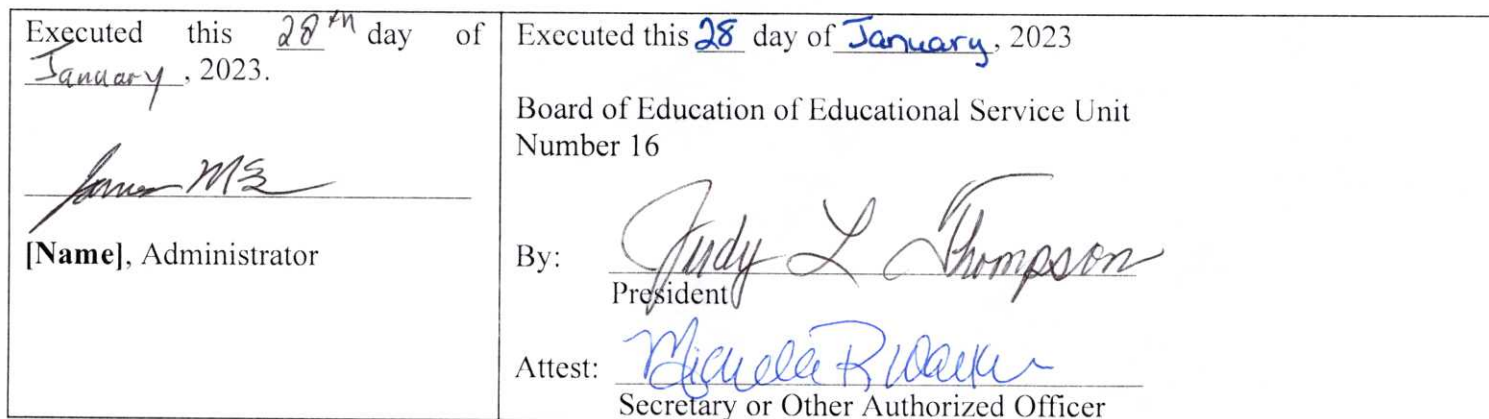 Executed this 28th day of
January, 2023.
[Name], Administrator
Executed this 28 day of January, 2023
Board of Education of Educational Service Unit
Number 16
By: Judy L Thompson
President
Attest: Michelle R Walker
Secretary or Other Authorized Officer